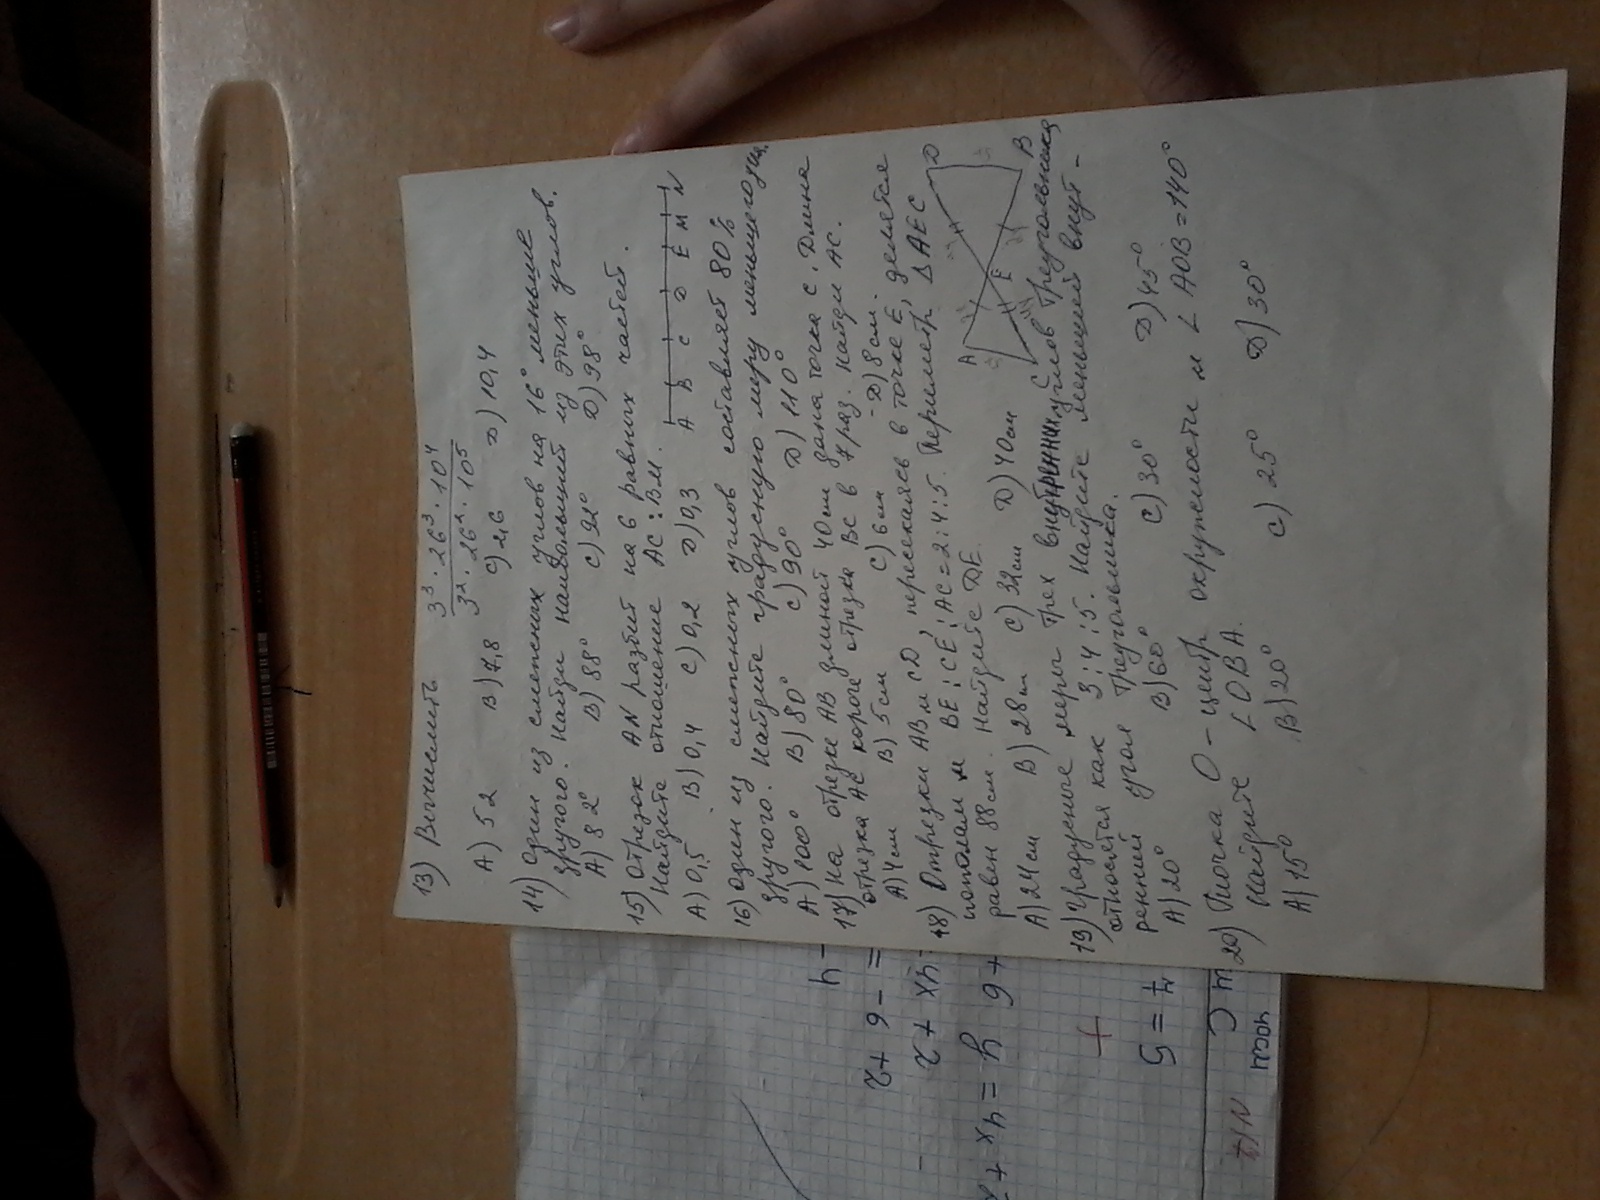 13) Вычислить 3³ · 26³ · 10⁴
3² · 26² · 10⁵
А) 52 В) 7,8 С) 2,6 D) 10,4
14) Один из смежных углов на 16° меньше
другого. Найди наибольший из этих углов.
А) 82° В) 88° С) 92° D) 98°
15) Отрезок AN разбит на 6 равных частей.
Найдите отношение AC : BM.
А) 0,5 В) 0,4 С) 0,2 D) 0,3
A B C D E M N
16) Один из смежных углов составляет 80%
другого. Найдите градусную меру меньшего угла.
А) 100° В) 80° С) 90° D) 110°
17) На отрезке AB длиной 40 см дана точка C. Длина
отрезка AC короче отрезка BC в 7 раз. Найди AC.
А) 4 см В) 5 см С) 6 см D) 8 см.
18) Отрезки AB и CD, пересекаясь в точке E, делятся
пополам и BE : CE : AC = 2 : 4 : 5. Периметр ΔAEC
равен 88 см. Найдите DE.
А) 24 см В) 28 см С) 32 см D) 40 см
A D E C B
19) Градусные меры трех внутренних углов треугольника
относятся как 3 : 4 : 5. Найдите меньший внут-
ренний угол треугольника.
А) 20° В) 60° С) 30° D) 45°
20) Точка O - центр окружности и ∠AOB = 140°
Найдите ∠OBA.
А) 15° В) 20° С) 25° D) 30°